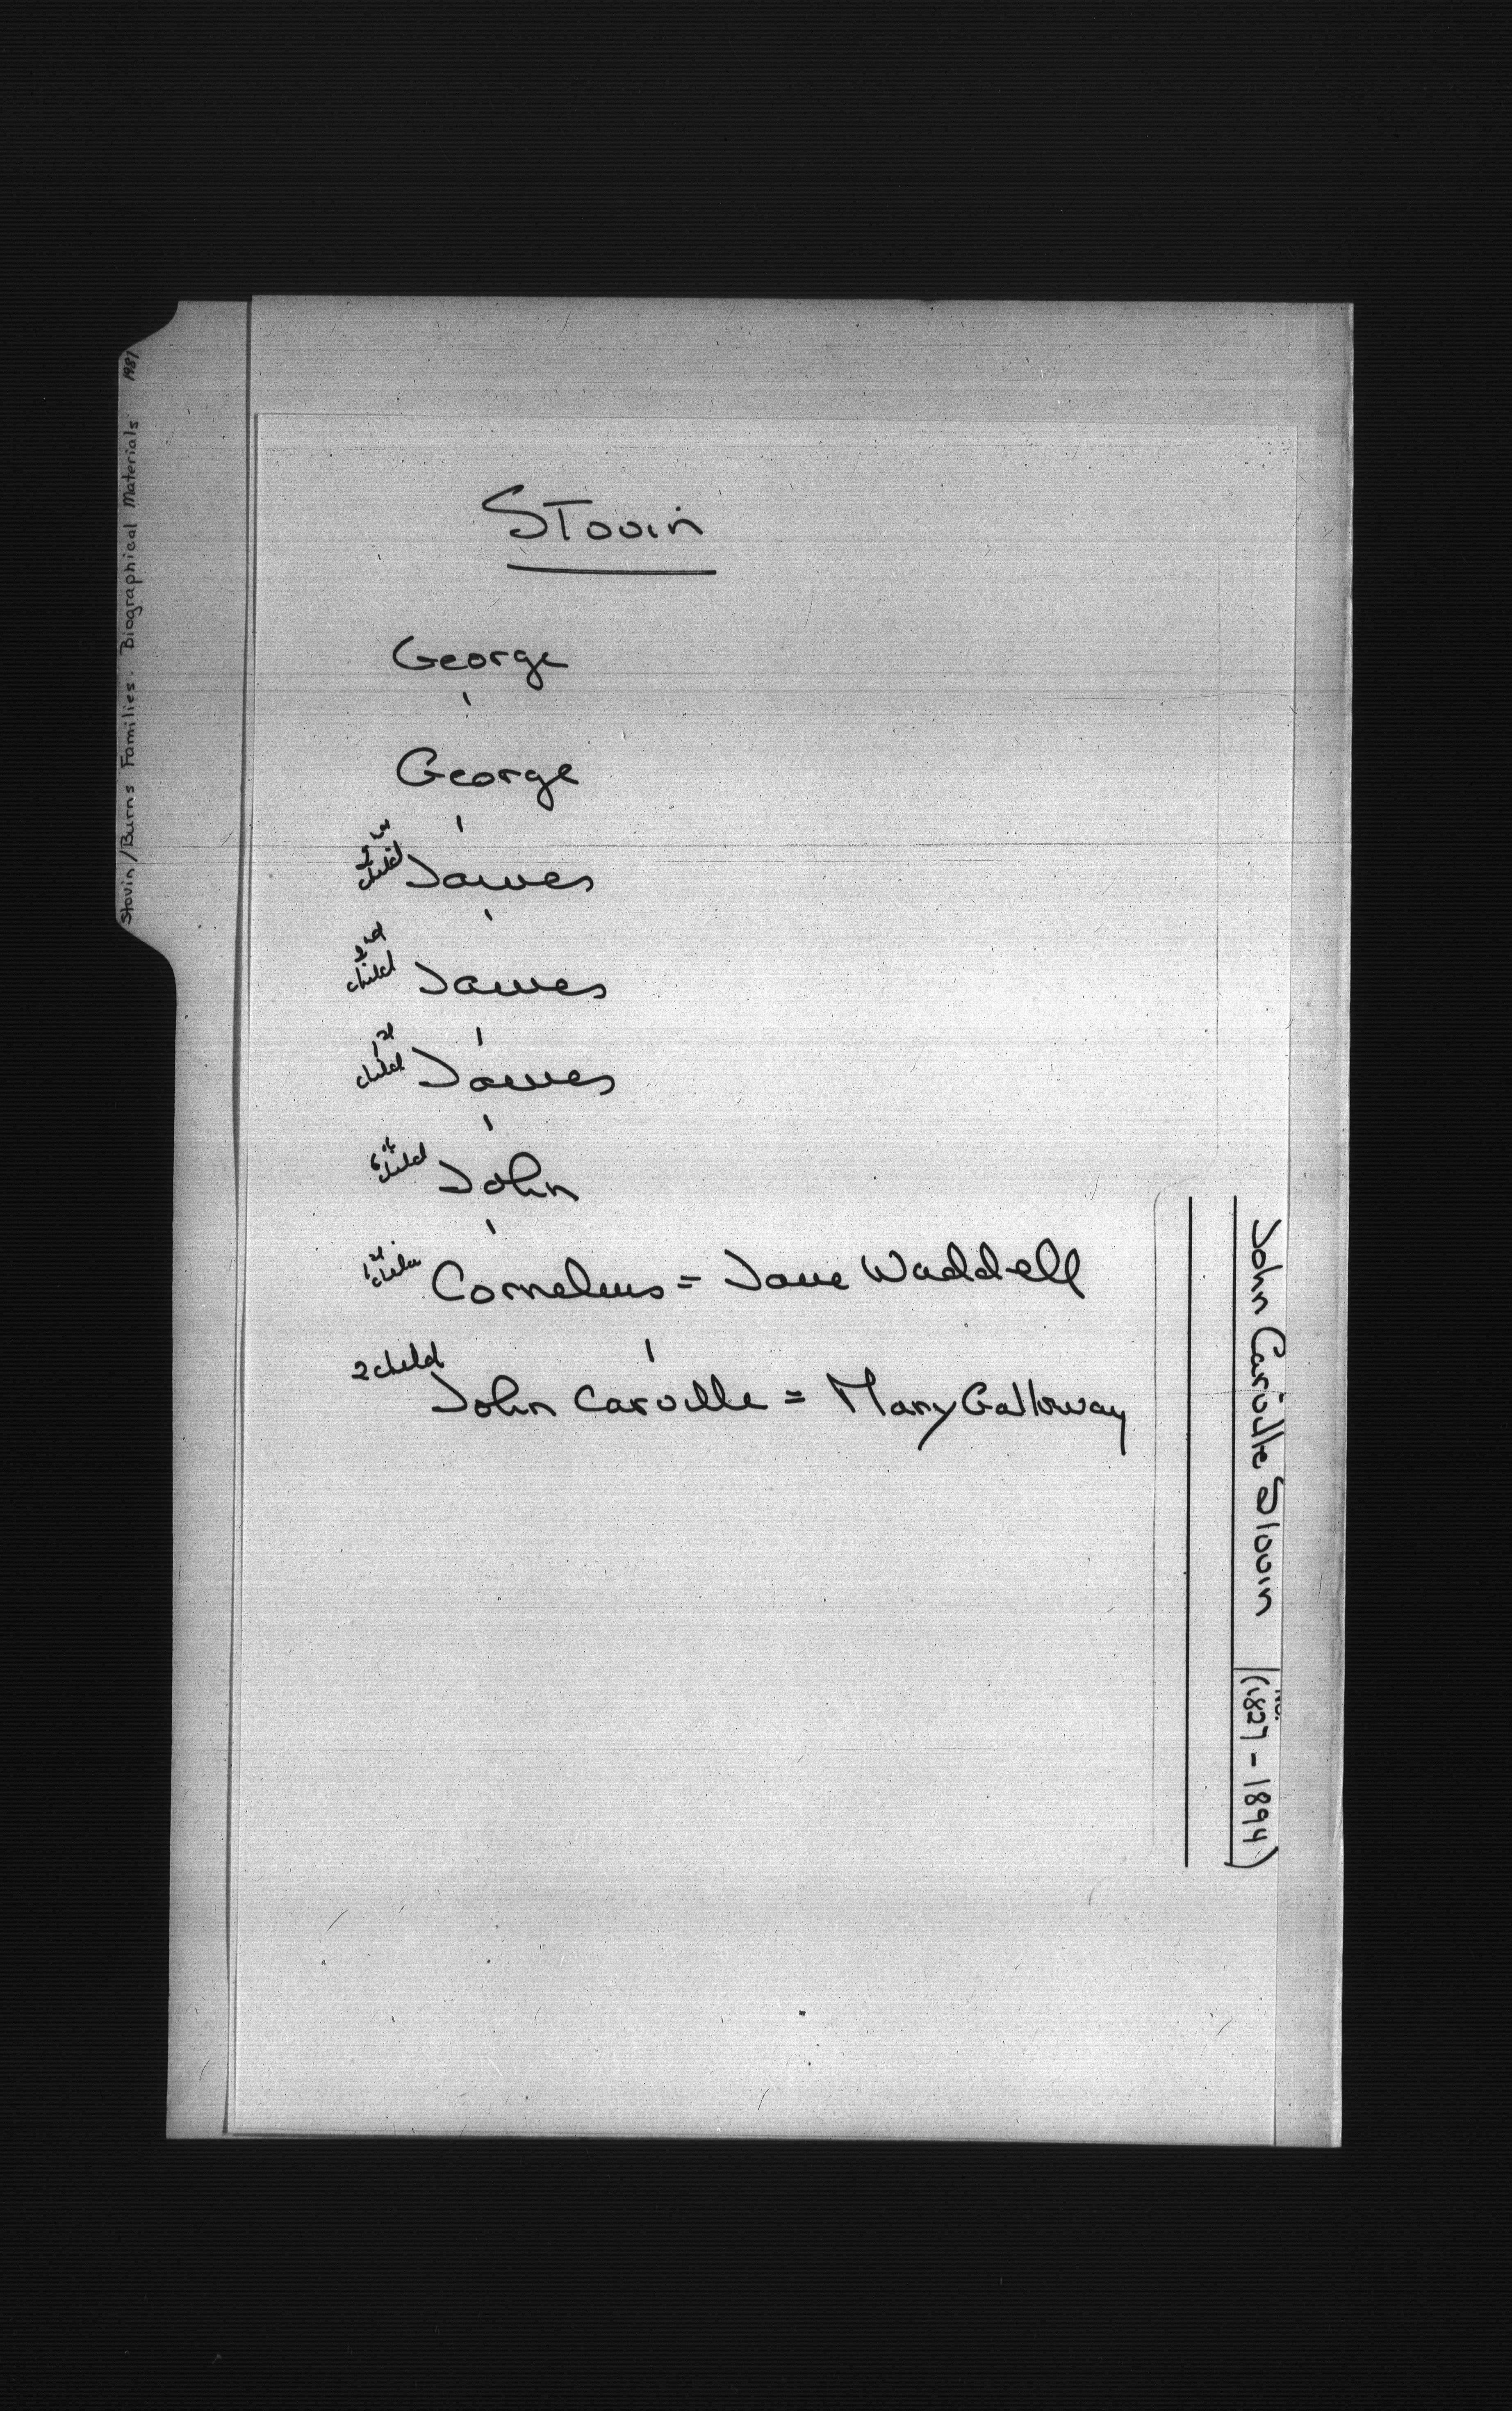 Stovin/Burns Families. Biographical Materials 1981
Stovin
George
George
child James
2nd
child James
1st
child James
6th
child John
1st
child Cornelius = Jane Waddell
2 child
John Carville = Mary Galloway
John Carville Stovin (1827 - 1894)
NO.